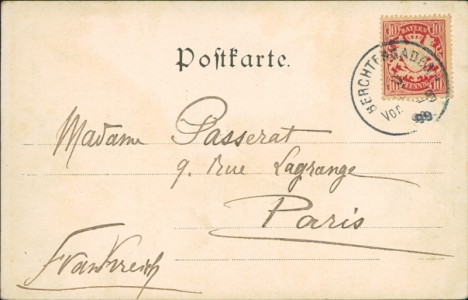 BAYERN
10 10
PFENNIG
BERCHTESGADEN
Vor.
99
Poſtkarte.
Madame Passerat
9. rue Lagrange
Paris
Frankreich